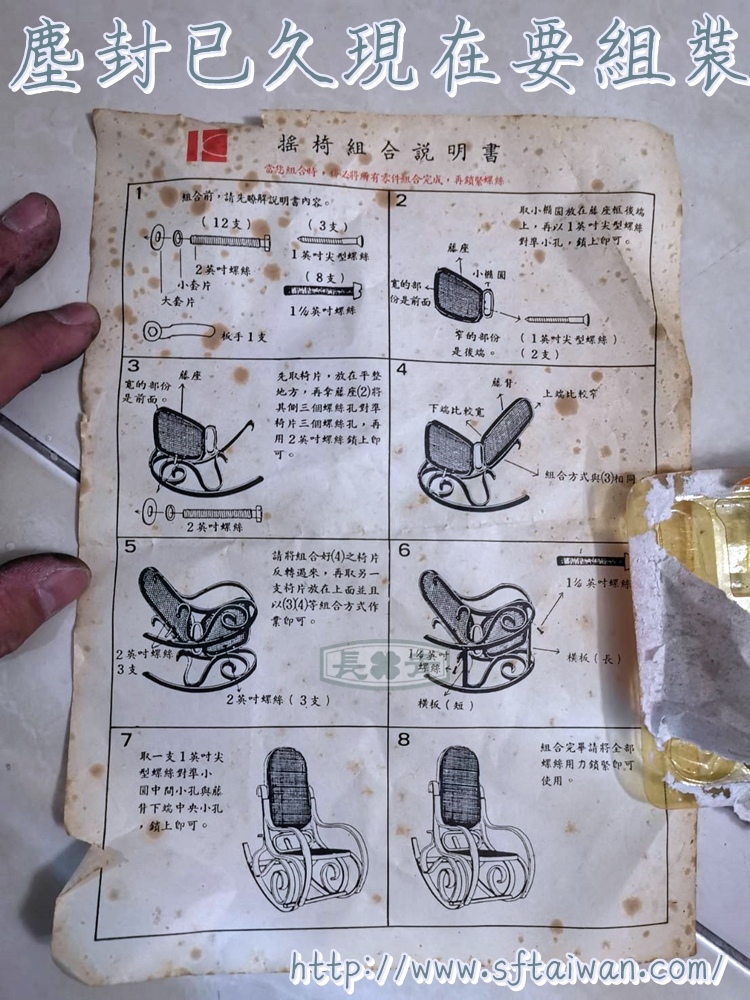 塵封已久現在要組裝
搖椅組合說明書
當您組合時,務必將所有零件組合完成,再鎖緊螺絲
1
組合前,請先瞭解說明書內容。
(12支)
(3支)
2英吋螺絲
1英吋尖型螺絲
小套片
(8支)
大套片
1½英吋螺絲
板手1支
2
取小橢圓放在藤座框後端
上,再以1英吋尖型螺絲
對準小孔,鎖上即可。
藤座
小橢圓
寬的部
份是前面
窄的部份
是後端。
(1英吋尖型螺絲)
(2支)
3
藤座
寬的部份
是前面。
先取椅片,放在平整
地方,再拿藤座(2)將
其側三個螺絲孔對準
椅片三個螺絲孔,再
用2英吋螺絲鎖上即
可。
2英吋螺絲
4
藤背
上端比較窄
下端比較寬
組合方式與(3)相同
5
請將組合好(4)之椅片
反轉過來,再取另一
支椅片放在上面並且
以(3)(4)等組合方式作
業即可。
2英吋螺絲
3支
2英吋螺絲(3支)
6
1½英吋螺絲
1½英吋
螺絲
橫板(長)
橫板(短)
長
7
取一支1英吋尖
型螺絲對準小
圓中間小孔與藤
背下端中央小孔
,鎖上即可。
8
組合完畢請將全部
螺絲用力鎖緊即可
使用。
http://www.sftaiwan.com/